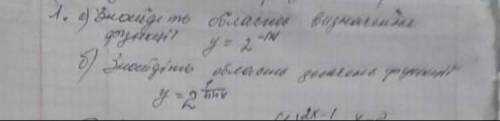 1. а) Знайдіть область визначення
функції y = 2^-|x|
б) Знайдіть область значень функції
y = 2^
2x-1